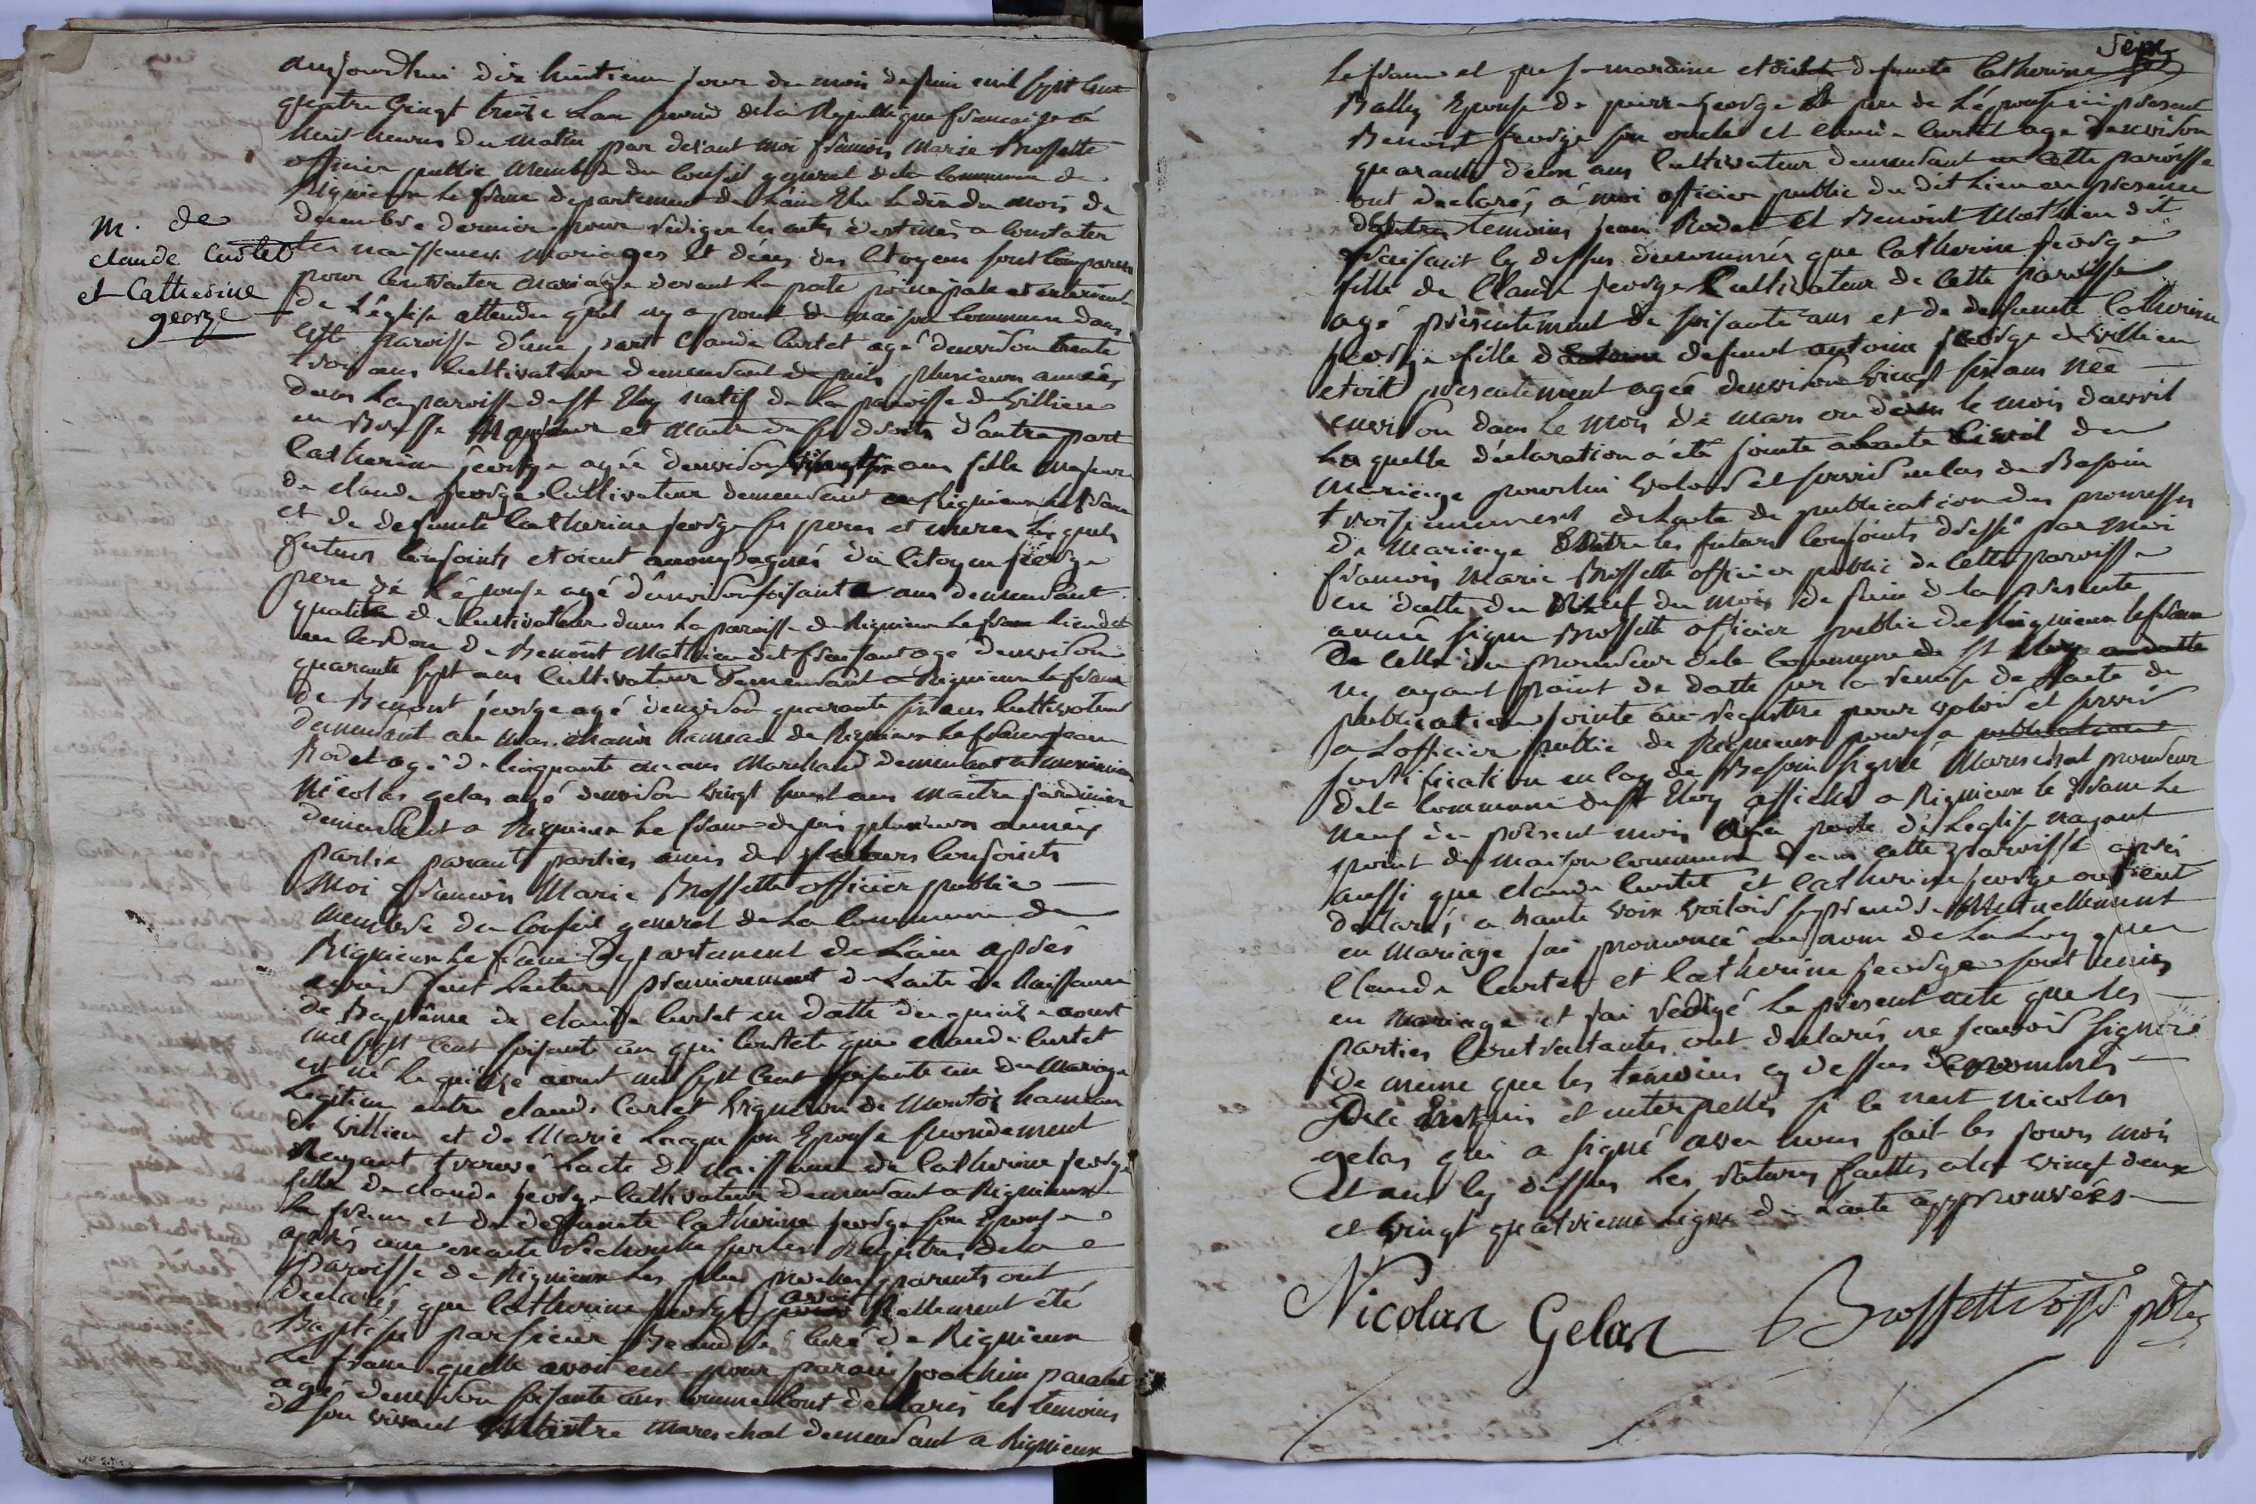 aujourdhui dix huitieme jour du mois de juin mil sept cent
quatre vingt treize lan second de la Republique francaise a
huit heures du matin par devant moi francois Marie Brossette
officier public membre du conseil general de la commune de
Rignieux le franc departement de Lain Elu le dix du mois de
decembre dernier pour rediger les actes destinés a constater
les naissances mariages et décès des Citoyens sont comparus
M. de
claude Curtet
et Catherine
george
pour contracter mariage devant la porte principale et exterieure
de L'église attendu quil ny a point de maison commune dans
cette paroisse d'une part Claude Curtet agé denviron trente
trois ans Cultivateur demeurant depuis plusieurs années
dans la paroisse de St Eloy natif de la paroisse de Villieu
en Bresse Majeur et maitre de ses droits d'autre part
Catherine george agée denviron vingt six ans fille majeure
de claude george Cultivateur demeurant a Rignieux le franc
et de defunte Catherine george ses peres et meres Lesquels
futurs conjoints etoient accompagnés du Citoyen george
pere de L'épouse agé denviron soisante ans demeurant
qualité de cultivateur dans la paroisse de Rignieux le franc lieu dit
de Benoit Mathieu dit fransant agé denviron
quarante sept ans Cultivateur demeurant a Rignieux le franc
de Benoit george agé denviron quarante six ans Cultivateur
demeurant au mas hameau de Rignieux le franc jean
Rodet agé de cinquante ans Marchand demeurant a
Nicolas gelas agé denviron vingt huit ans maitre jardinier
demeurant a Rignieux le franc depuis plusieurs années
partie parants parties amis des futurs conjoints
Moi francois Marie Brossette officier public
membre du Conseil general de la commune de
Rignieux le franc Departement de Lain après
avoir fait Lecture premierement de Lacte de Naissance
de Baptême de claude Curtet en datte du quinze aout
mil sept cent soisante un qui constate que claude Curtet
est né le quinze aout mil sept cent soisante un du mariage
Legitime entre claude Curtet vigneron de Montoz hameau
de Villieu et de Marie Lacque son Epouse secondement
Nayant trouvé Lacte de naissance de Catherine george
fille de claude george cultivateur demeurant a Rignieux
le franc et de deffunte Catherine george son Epouse
après une exacte recherche sur les Registres de la
Paroisse de Rignieux Les plus proches parents ont
declarés que Catherine george avoit Reellement été
Baptisée par sieur curé de Rignieux
Le franc quelle avoit eut pour parain joachim
agé denviron soisante ans comme lont declarés les temoins
de son vivant Maitre Mareschal demeurant a Rignieux
Sept
Le franc et que sa maraine etoit defunte Catherine
Bally Epouse de pierre george et pere de L'épouse ici present
Benoit george son oncle et claude Curtet agé denviron
quarante deux ans Cultivateur demeurant en cette paroisse
ont declarés á moi officier public du dit Lieu en presence
d'autres temoins jean Rodet et Benoit Mathieu dit
fransant cy dessus denommés que Catherine george
fille de Claude george Cultivateur de cette paroisse
agé présentement de soisante ans et de deffunte Catherine
george fille d defunt antoine george de Villieu
etoit presentement agée denviron vingt six ans née
environ dans le mois de mars ou dans le mois davril
Laquelle déclaration a été jointe a Lacte Civil du
mariage pour lui valoir et servir en cas de Besoin
troisiemement de Lacte de publication des promesses
de Mariage Entre les futurs Conjoints dressé par moi
francois Marie Brossette officier public de cette paroisse
en datte du Neuf du mois de juin de la presente
année signé Brossette officier public de Rignieux le franc
De celle du procureur de la commune de St Eloy en datte
ny ayant point de datte sur la remise de Lacte de
publication jointe au registre pour valoir et servir
a Lofficier public de Rignieux pour sa publication
justification en cas de Besoin signé Mareschal procureur
de la commune de St Eloy affiché a Rignieux le franc Le
Neuf du présent mois a la porte de Leglise nayant
point de maison commune dans cette paroisse après
aussi que claude Curtet et Catherine george eussent
déclarés a haute voix vouloir se prendre Mutuellement
en mariage jai prononcé au nom de la Loy que
Claude Curtet et Catherine george sont unis
en mariage et jai redigé le présent acte que les
parties Contractantes ont declarés ne scavoir signer
de meme que les témoins cy dessus denommés
De ce Enquis et interpellés si ce nest Nicolas
gelas qui a signé avec nous fait les jours mois
Et ans cy dessus Les ratures faittes a la vingt deux
et vingt quatrieme ligne de Lacte approuvées
Nicolas Gelas Brossette offr public